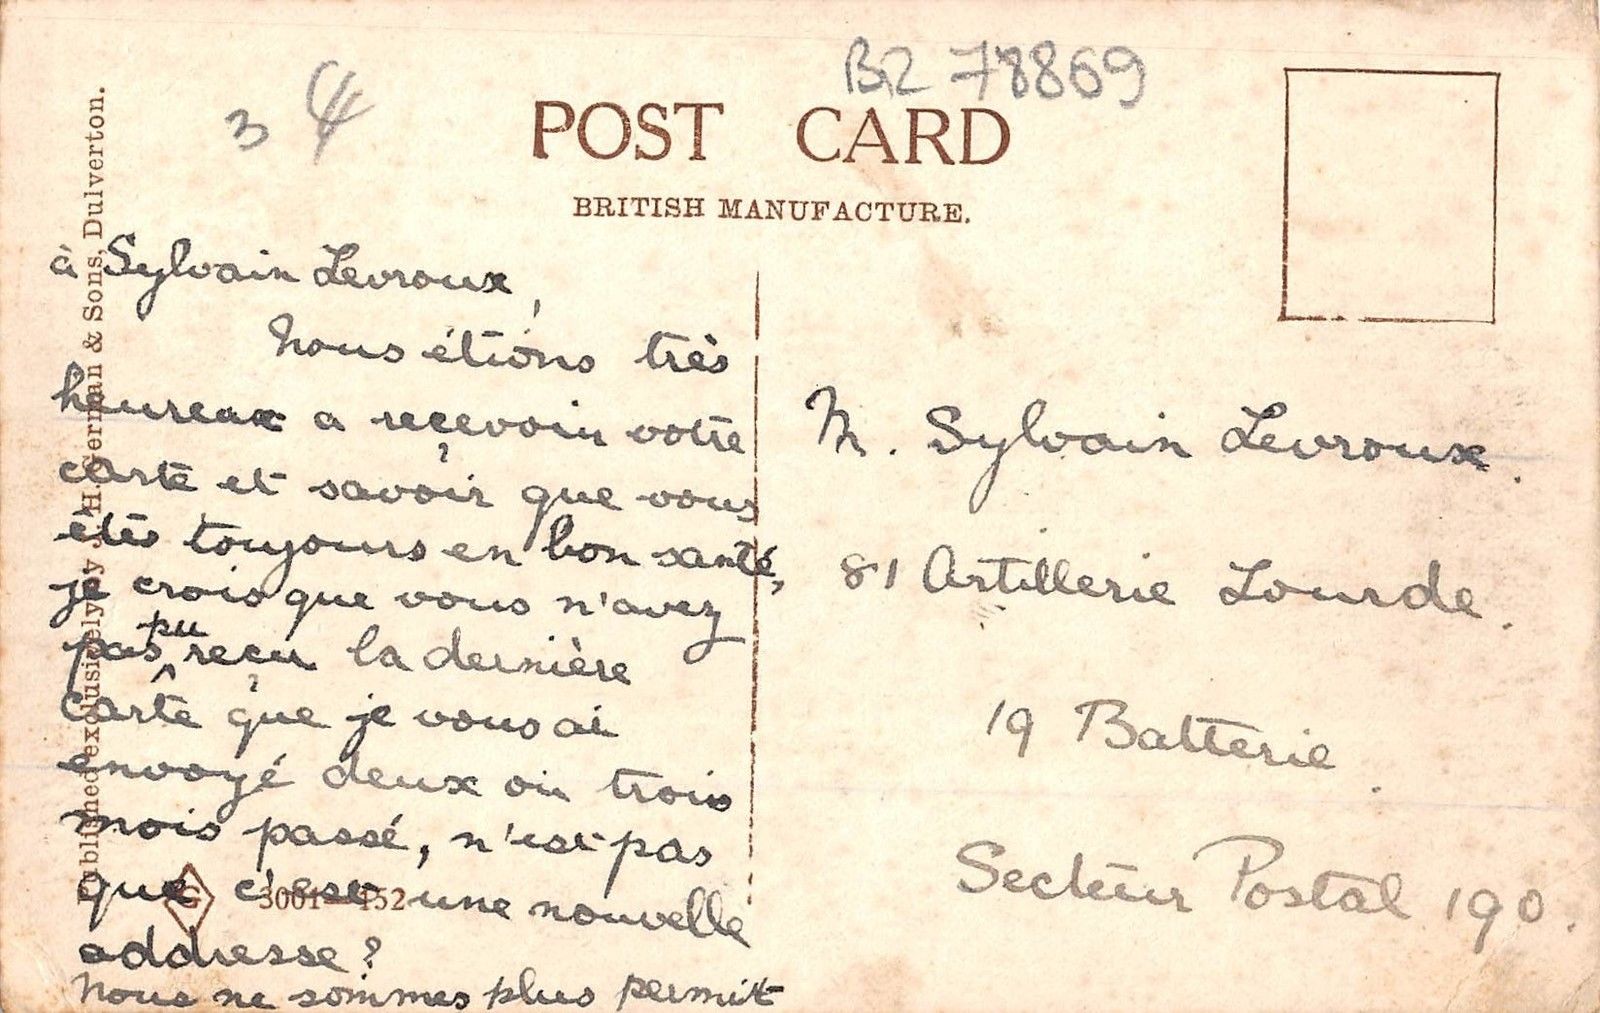 B2 78869
3
POST CARD
BRITISH MANUFACTURE.
Published exclusively by J. H. German & Sons, Dulverton.
à Sylvain Levroux,
Nous étions très
heureux a reçevoir votre
carte et savoir que vous
êtês toujours en bon santé,
je crois que vous n'avez
pas pu reçu la dernière
carte que je vous ai
envoyé deux ou trois
mois passé, n'est pas
que c'est une nouvelle
addresse?
Nous ne sommes plus permit
G 3001 152
M. Sylvain Levroux.
81 Artillerie Lourde.
19 Batterie.
Secteur Postal 190.